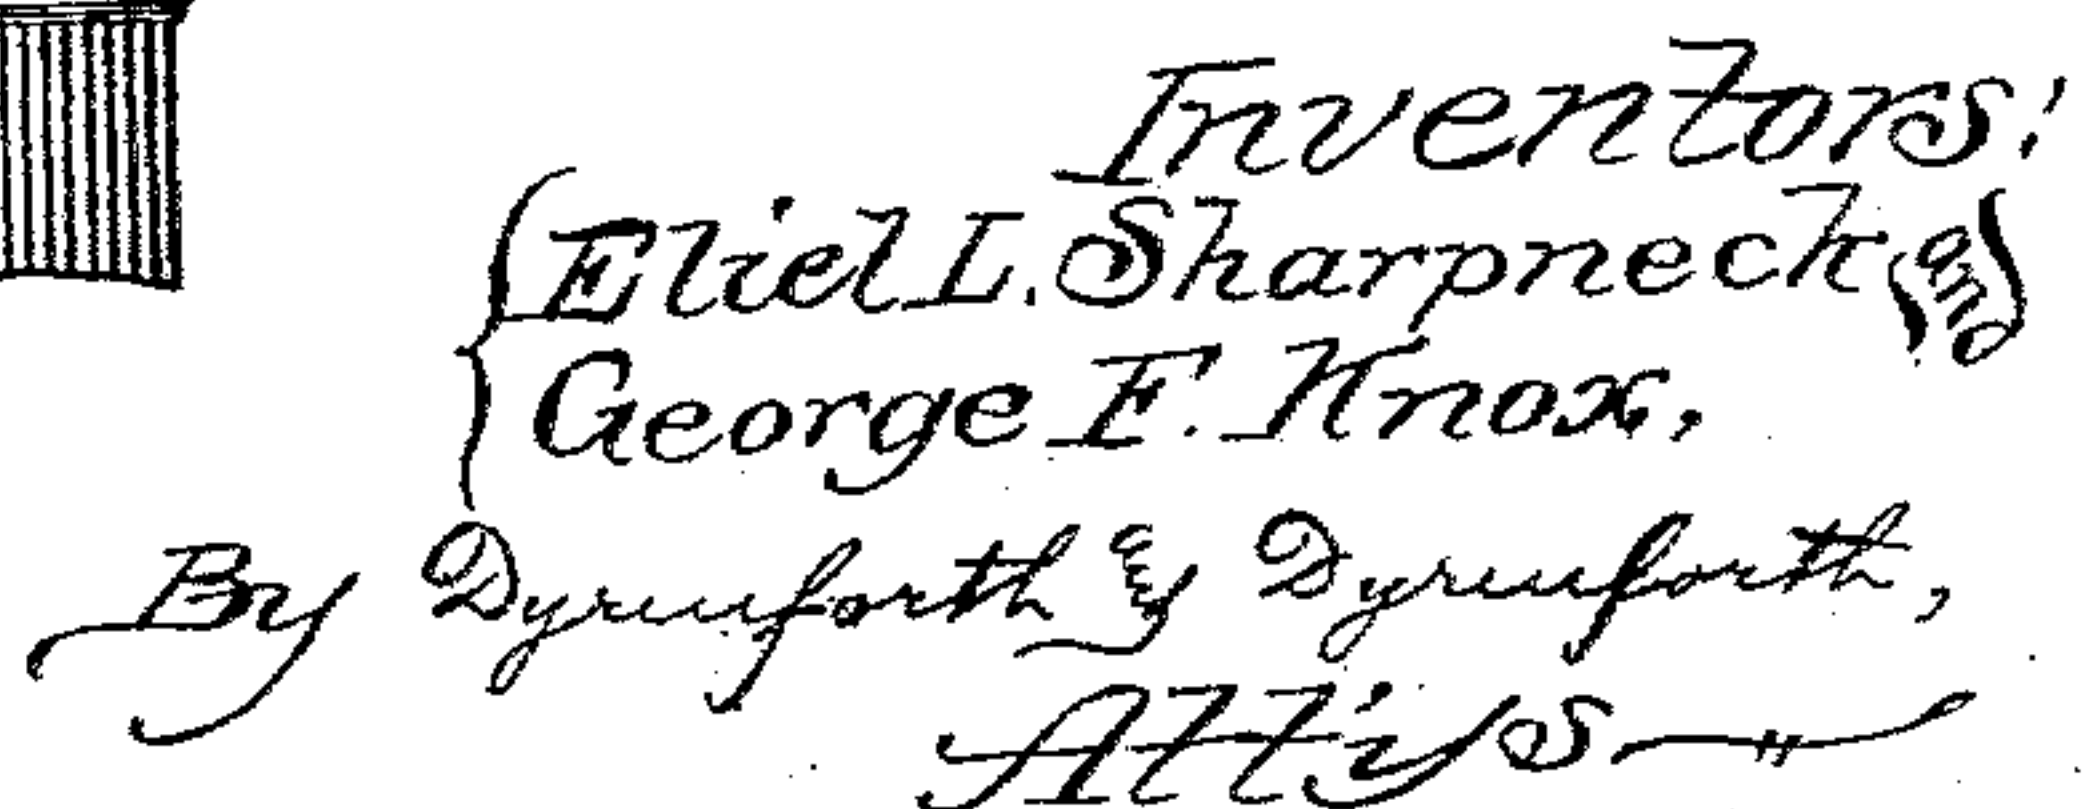 Inventors:
Eliel L. Sharpneck and
George F. Knox,
By Dyrenforth & Dyrenforth,
Att'ys